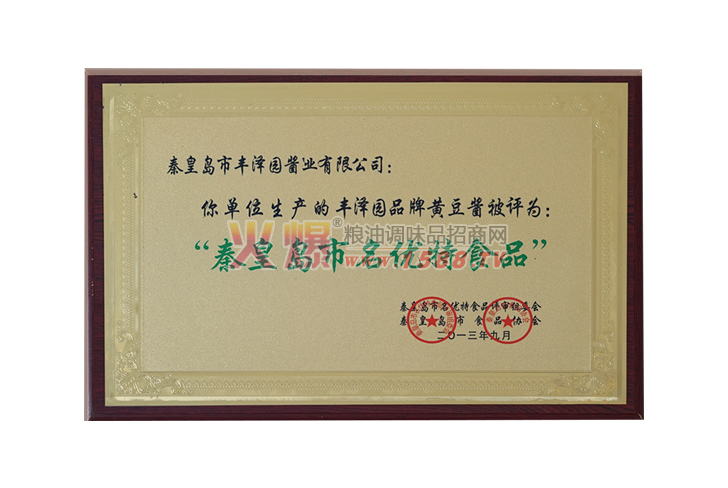 秦皇岛市丰泽园酱业有限公司：
你单位生产的丰泽园品牌黄豆酱被评为：
火爆® 粮油调味品招商网
“秦皇岛市名优特食品”
秦皇岛市名优特食品评审组委会
秦皇岛市食品协会
二〇一三年九月